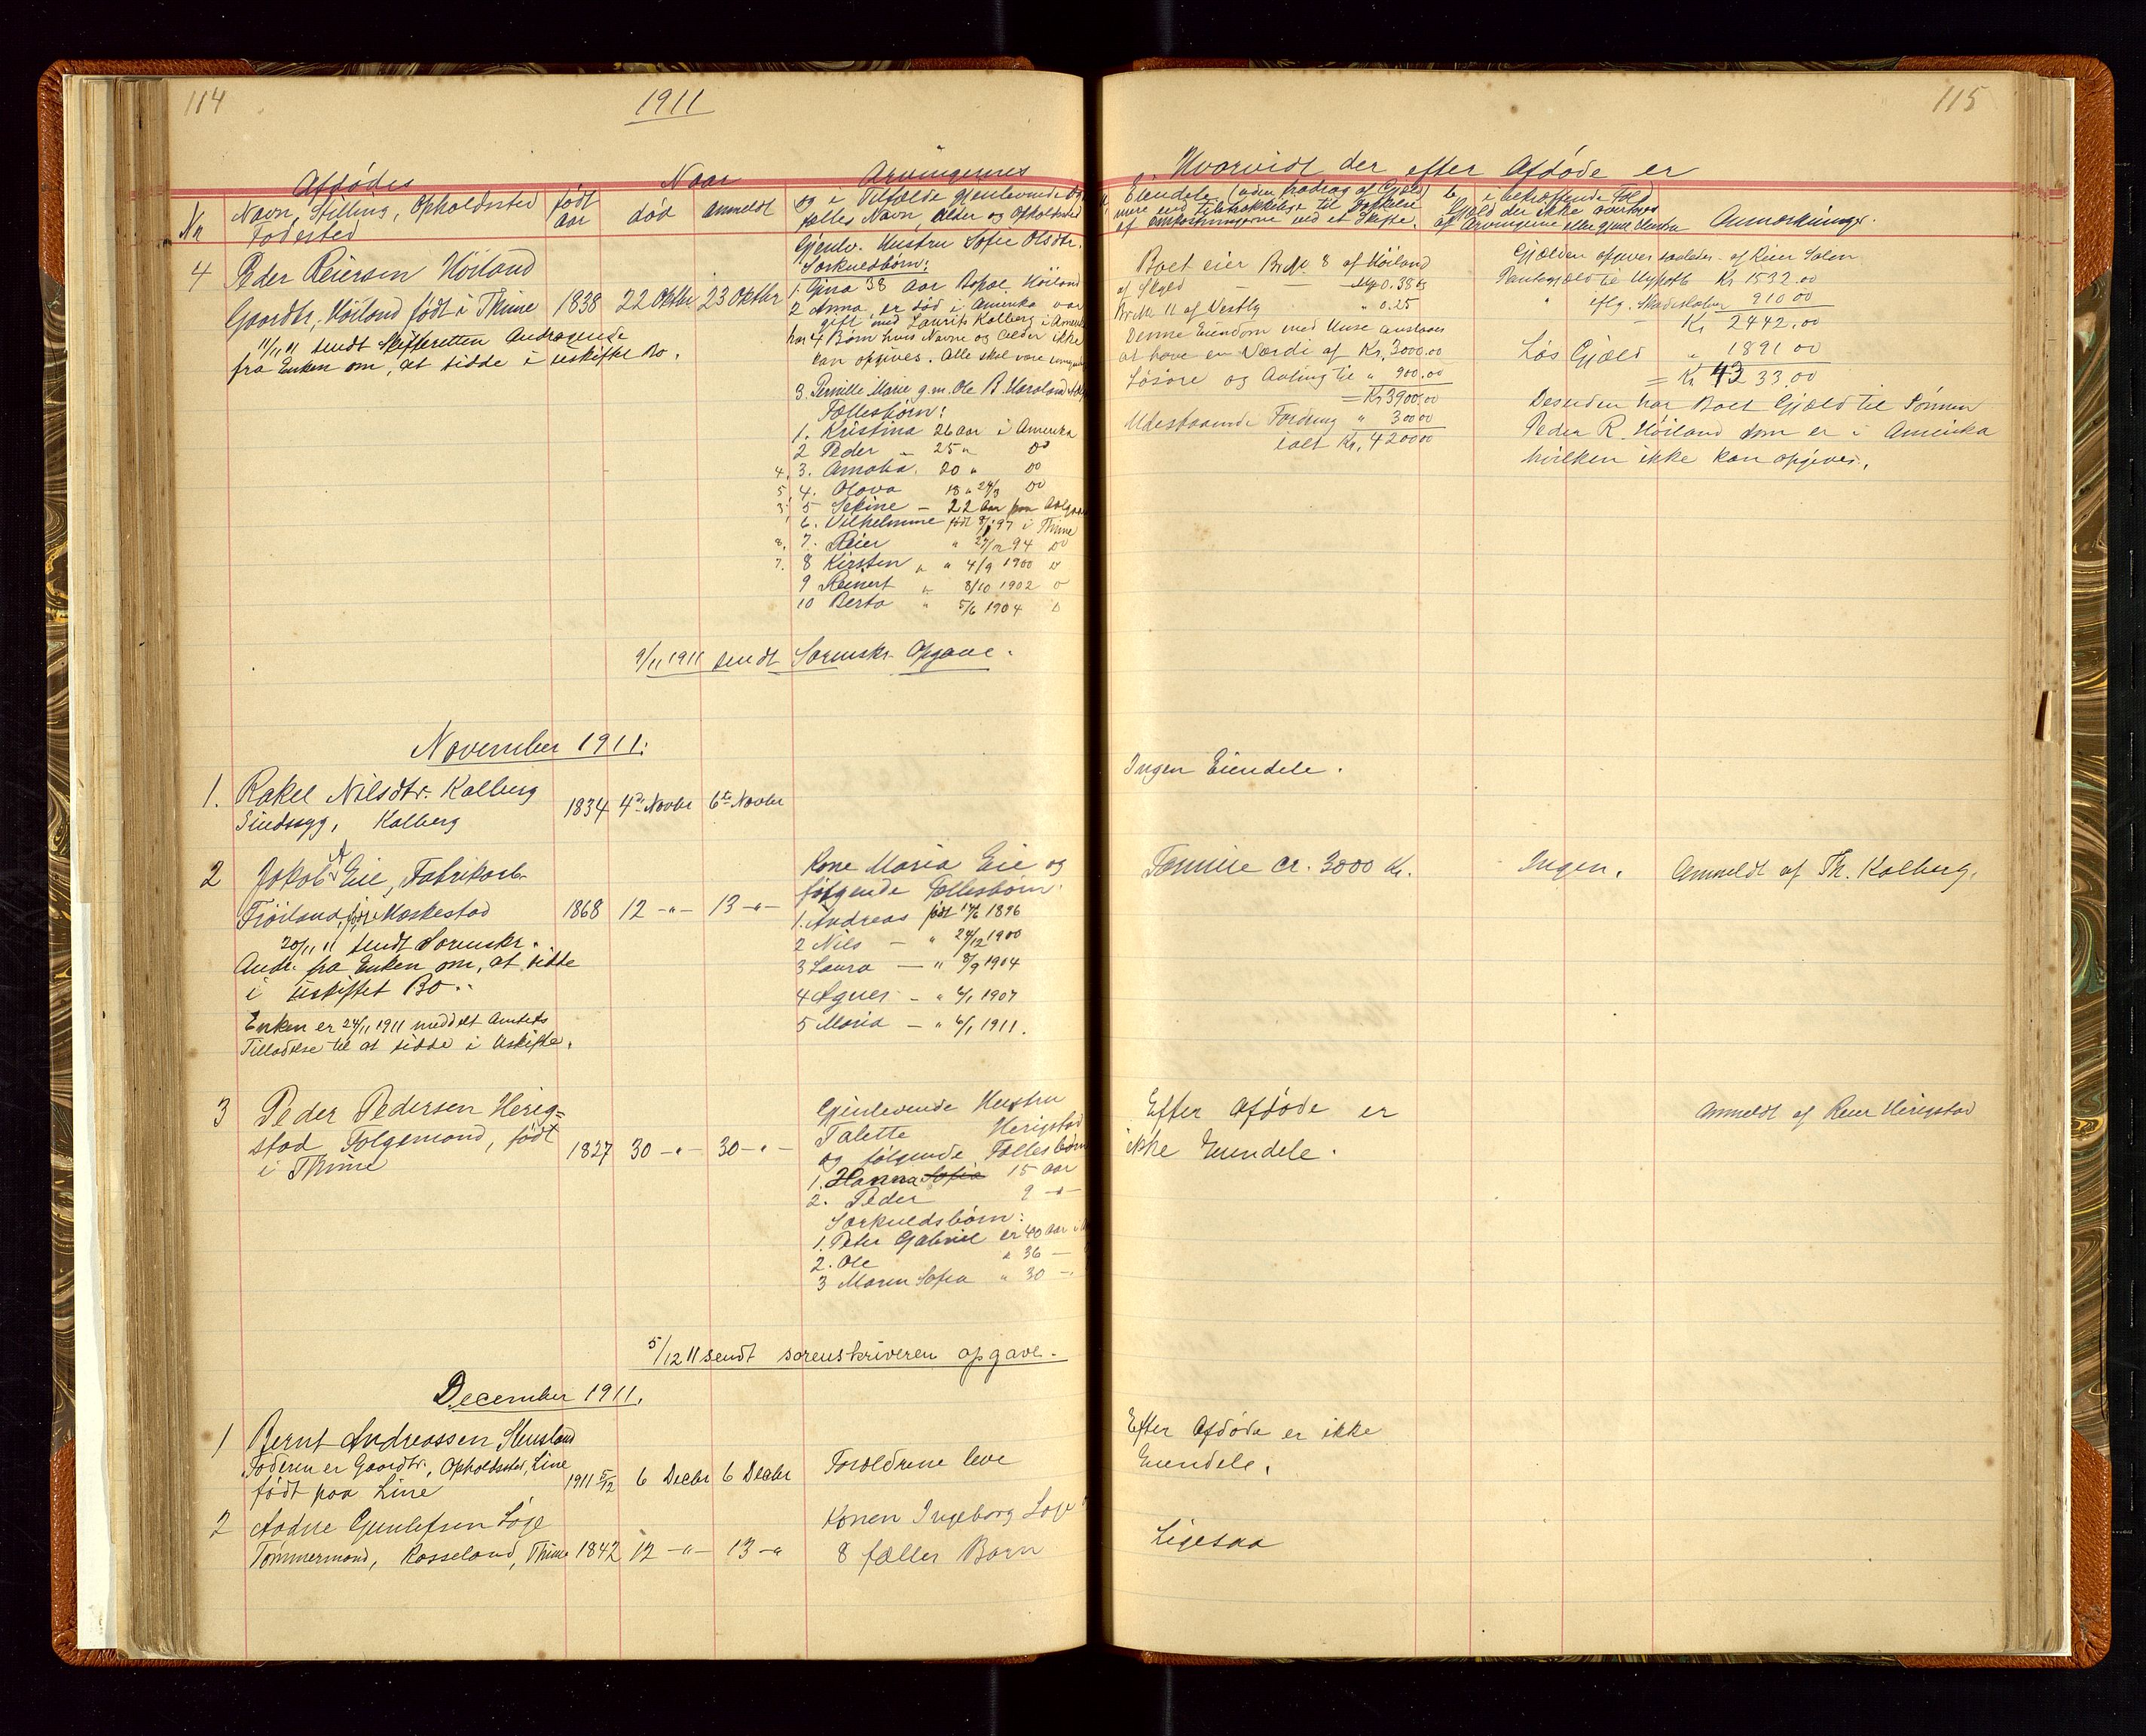 114
1911
Afdødes
Naar
Arvingernes
Nr
Navn, Stilling, Opholdssted
Fødested
født
aar
død
anmeldt
og i Tilfælde gjenlevende
fælles Navn, Alder og Opholdssted
4
Peder Reiersen Höiland
Gaardbr. Höiland født i Thime
1838
22 Oktbr
23 Oktbr
11/11 11 sendt Skifteretten Andragende
fra Enken om, at sidde i uskiftet Bo.
Gjenlv. Hustru Sofie Olsdtr.
Særkuldbörn:
1. Gina 38 Aar Bopæl Höiland
2 Anna, er død i Amerika var
gift med Laurits Kalberg i Amerika
har 4 Børn hvis Navne og Alder ikke
kan opgives. Alle skal være
3. Pernille Marie g.m. Ole B. Haaland
Fællesbörn:
1. Kristina 26 aar i Amerika
2 Peder - 25 " Do
4. 3. Amalia 20 " Do
5 4. Olava 18 " 24/3 Do
5 Sekine - 22 Aar paa
6. Vilhelmine født 97 i Thime
7. Reier " 94 Do
7. 8 Kirsten " " 4/9 1900 D
9 Reinert " 8/10 1902
10 Berta " 5/6 1904
9/11 1911 sendt Sorenskr. Opgave.
November 1911:
1.
Rakel Nilsdtr. Kalberg
Sindssyg, Kalberg
1834
4de Novbr
6te Novbr
2
Jakob A Eie, Fabrikarb.
Fröiland, født i Kaskestad
1868
12 -"-
13 -"-
20/11 11 sendt Sorenskr.
Andr. fra Enken om, at sidde
i uskiftet Bo.
Enken er 24/11 1911 meddelt Amtets
Tilladelse til at sidde i Uskifte.
Kone Maria Eie og
følgende Fællesbörn:
1. Andreas født 17/6 1896
2 Nils - " 24/12 1900
3 Laura - " 8/9 1904
4 Agnes - " 6/1 1907
5 Maria - " 6/1 1911.
3
Peder Pedersen Herig=
stad Folgemand, født
i Thime
1827
30 -"-
30 -"-
Gjenlevende Hustru
Talette Herigstad
og følgende Fællesbörn
1. Hanna Sofia 15 aar
2. Peder 9 -"-
Særkuldsbörn:
1. Peter Gabriel er 40 aar i
2. Ole " 36 -
3 Maren Sofia " 30 -
5/12 11 sendt sorenskriveren opgave.
December 1911.
1
Bernt Andreassen
Faderen er Gaardbr., Opholdssted, Line
født paa Line
1911 5/12
6 Decbr
6 Decbr
Forældrene leve
2
Aadne Gunlefsen Løge
Tømmermand, Rosseland, Thime
1842
12 -"-
13 -"
Konen Ingeborg Løge
8 fælles Børn
115
Hvorvidt der efter Afdøde er
a, Eiendele (uden fradrag af Gjæld)
mere end Tilstrækkelige til Dækkelse
af Omkostningerne ved et Skifte.
b, i bekræftende Fald
Gjæld der ikke overtages
af Arvingerne eller gjenl. Hustru
Anmærkninger.
Boet eier Br.№ 8 af Höiland
af Skyld - - 0.38
Br.№ 11 af Vestly " 0.25
Denne Eiendom med Huse ansaaes
at have en Værdi af Kr. 3000.00
Løsøre og Avling til " 900.00
= Kr 3900.00
Udestaaende Fordring " 300 00
ialt Kr. 4200 00
Gjælden opgives saaledes af Reier Salen
Pantegjæld til Hypothb Kr 1532.00
" 910 00
Kr 2442.00
Løs Gjæld " 1891 00
= Kr 4333.00
Desuden har Boet Gjæld til Sønnen
Peder R. Höiland som er i Amerika
hvilken ikke kan opgives.
Ingen Eiendele.
Formue ca. 3000 Kr.
Ingen.
Anmeldt af Th. Kalberg.
Efter Afdøde er
ikke Eiendele.
Anmeldt af Reier Herigstad
Efter Afdøde er ikke
Eiendele.
Ligesaa